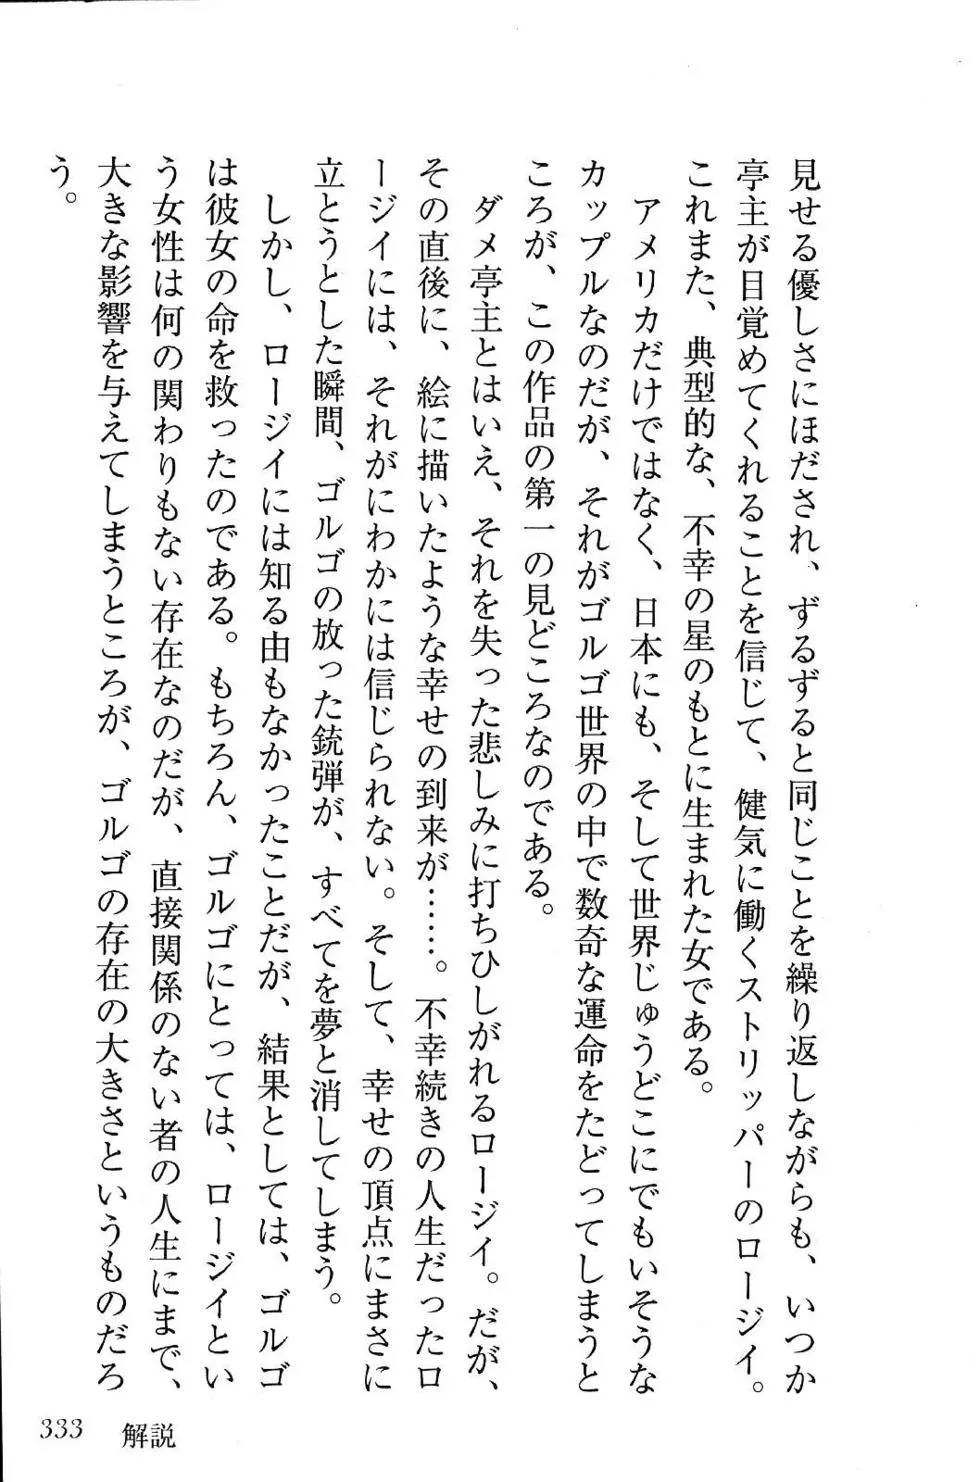 見せる優しさにほだされ、ずるずると同じことを繰り返しながらも、いつか
亭主が目覚めてくれることを信じて、健気に働くストリッパーのロージィ。
これまた、典型的な、不幸の星のもとに生まれた女である。
アメリカだけではなく、日本にも、そして世界じゅうどこにでもいそうな
カップルなのだが、それがゴルゴ世界の中で数奇な運命をたどってしまうと
ころが、この作品の第一の見どころなのである。
ダメ亭主とはいえ、それを失った悲しみに打ちひしがれるロージィ。だが、
その直後に、絵に描いたような幸せの到来が……。不幸続きの人生だったロ
ージイには、それがにわかには信じられない。そして、幸せの頂点にまさに
立とうとした瞬間、ゴルゴの放った銃弾が、すべてを夢と消してしまう。
しかし、ロージイには知る由もなかったことだが、結果としては、ゴルゴ
は彼女の命を救ったのである。もちろん、ゴルゴにとっては、ロージイとい
う女性は何の関わりもない存在なのだが、直接関係のない者の人生にまで、
大きな影響を与えてしまうところが、ゴルゴの存在の大きさというものだろ
う。
333 解説